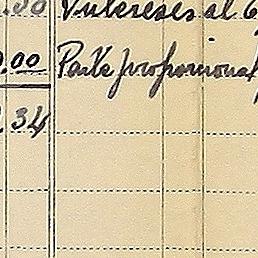 Intereses al 6
.00 Parte proporcional
34